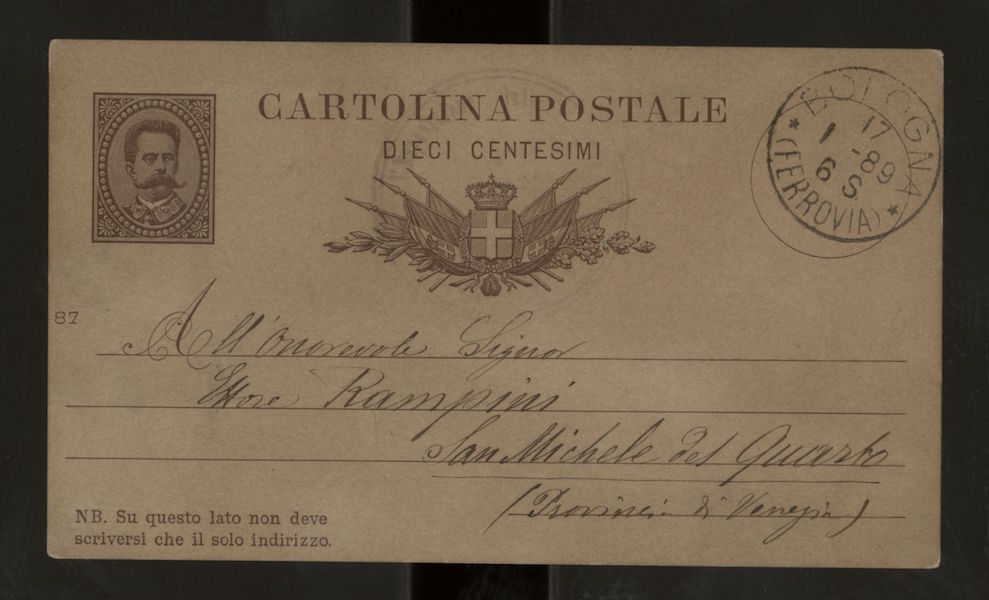 CARTOLINA POSTALE
DIECI CENTESIMI
BOLOGNA
17
1 -89
6 S
* (FERROVIA) *
87
All'onorevole Signor
Ettore Rampini
San Michele del Quarto
(Provincia di Venezia)
NB. Su questo lato non deve
scriversi che il solo indirizzo.